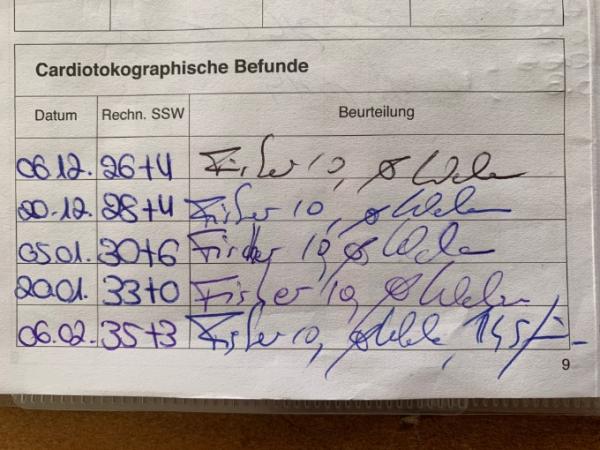 Cardiotokographische Befunde
Datum Rechn. SSW Beurteilung
06.12. 26+4 Fischer 10, ø Wehen
20.12. 28+4 Fischer 10, ø Wehen
05.01. 30+6 Fischer 10, ø Wehen
20.01. 33+0 Fischer 10, ø Wehen
06.02. 35+3 Fischer 10, ø Wehen,
9